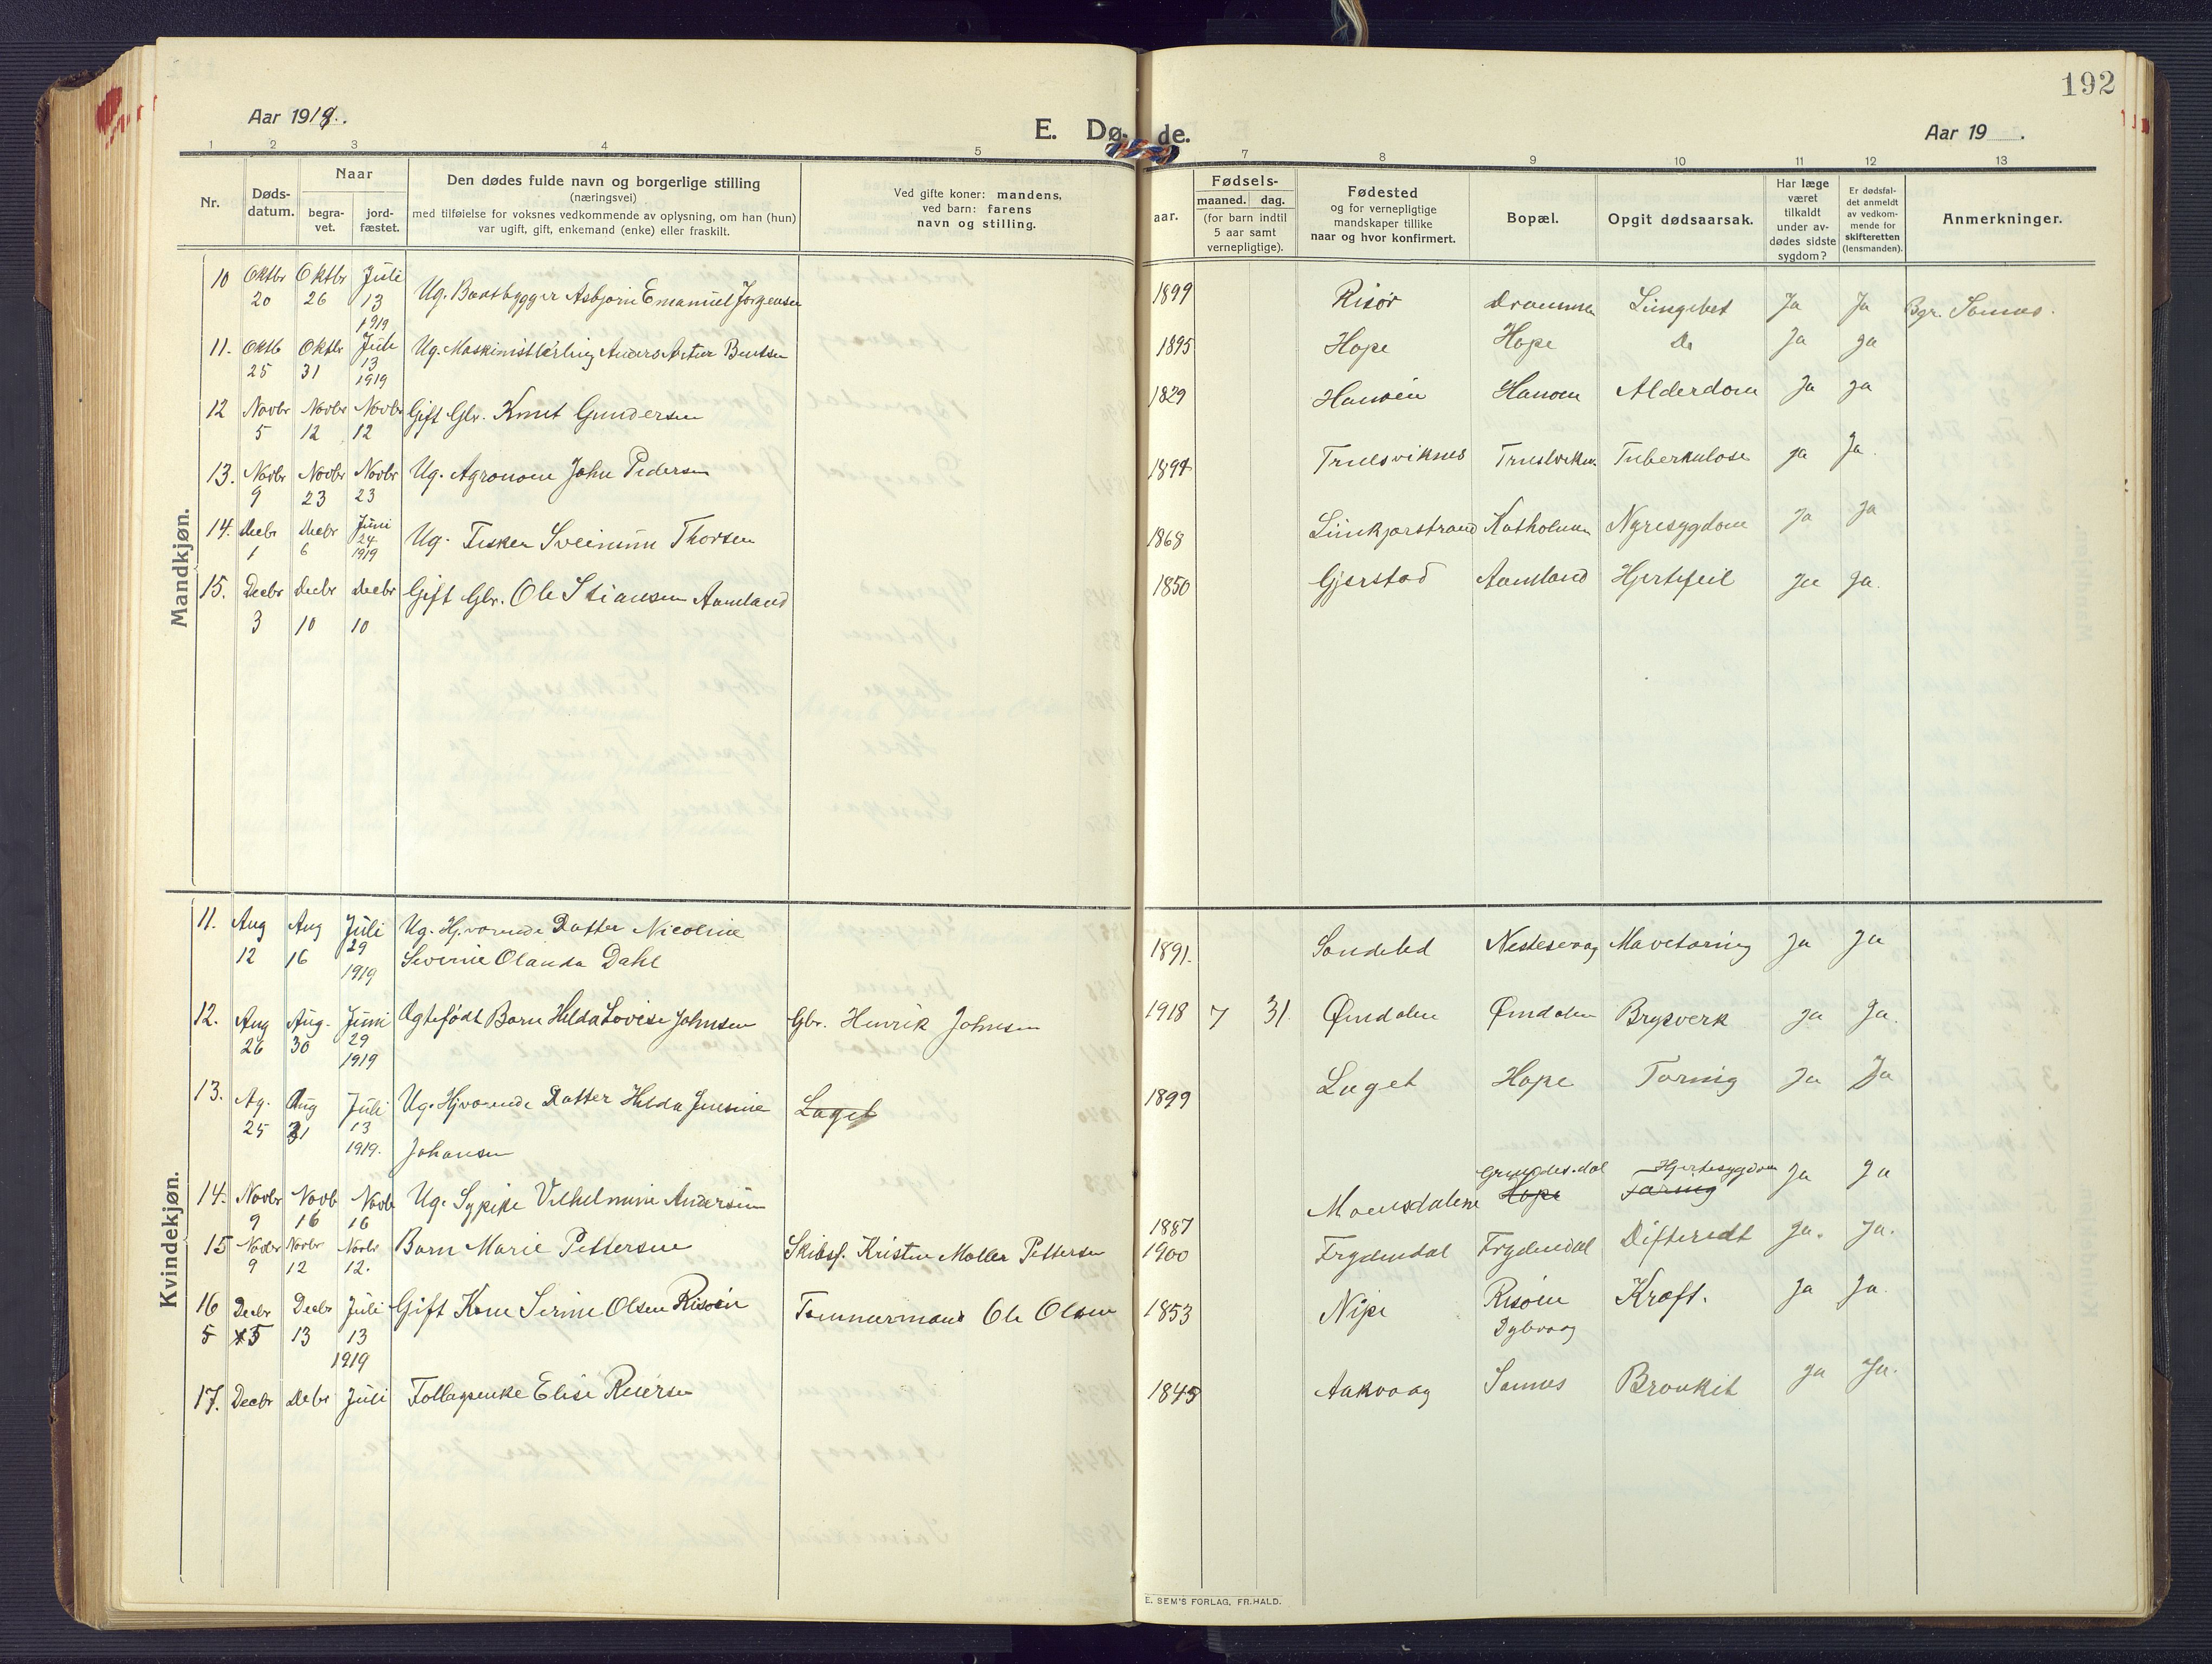 192
Aar 1918.
E. Dø- de.
Aar 19 .
1 2 3 4 5 7 8 9 10 11 12 13
Nr.
Døds-
datum.
Naar
begra-
vet.
jord-
fæstet.
Den dødes fulde navn og borgerlige stilling
(næringsvei)
med tilføielse for voksnes vedkommende av oplysning, om han (hun)
var ugift, gift, enkemand (enke) eller fraskilt.
Ved gifte koner: mandens,
ved barn: farens
navn og stilling.
aar.
Fødsels-
maaned. dag.
(for barn indtil
5 aar samt
vernepligtige).
Fødested
og for vernepligtige
mandskaper tillike
naar og hvor konfirmert.
Bopæl.
Opgit dødsaarsak.
Har læge
været
tilkaldt
under av-
dødes sidste
sygdom?
Er dødsfal-
det anmeldt
av vedkom-
mende for
skifteretten
(lensmanden).
Anmerkninger.
Mandkjøn.
10 Oktbr 20 Oktbr 26 Juli 13 1919 Ug. Baatbygger Asbjørn Emanuel Jørgensen 1899 Risør Drammen Lungebet Ja Ja Bgr. Sannes.
11. Oktb 25 Oktbr 31 Juli 13 1919 Ug. Maskinistlærling Anders Artur Bentsen 1895 Hope Hope Do Ja Ja
12 Novbr 5 Novbr 12 Novbr 12 Gift Gbr. Knut Gundersen 1829 Hansen Alderdom Ja Ja
13. Novbr 9 Novbr 23 Novbr 23 Ug. Agronom John Pedersen 1894 Truelsviknes Tuberkulose Ja Ja.
14. Decbr 1 Decbr 6 Juni 24 1919 Ug. Fisker Sveinum Thorsen 1868 Nyresygdom Ja Ja
15. Decbr 3 Decbr 10 Decbr 10 Gift Gbr. Ole Stiansen Aamland 1850 Gjerstad Aamland Hjertefeil Ja Ja.
Kvindekjøn.
11. Aug 12 Aug 16 Juli 29 1919 Ug. Hj.værende Datter Nicoline
Severine Olanda Dahl 1891. Søndeled Mavetæring Ja Ja
12. Aug 26 Aug. 30 Juni 29 1919 Ægtefødt Barn Hilda Lovise Johnsen Gbr. Henrik Johnsen 1918 7 31. Ømdalen Ømdalen Ja Ja.
13. Ag. 25 Aug 31 Juli 13 1919. Ug. Hjværende Datter Hilda Jensine
Johansen Laget 1899 Laget Hope Tæring Ja Ja
14. Novbr 9 Novb 16 Novb 16 Ug. Sypike Vilhelmine Andersen 1887 Moensdalene Hope Hjertesygdom Tæring Ja Ja
15 Novbr 9 Novbr 12 Novbr 12. Barn Marie Pettersen Skibsf. Kristen Møller Pettersen 1900 Frydendal Frydendal Difteridt Ja. Ja.
16 Decbr 5 Decbr 13 Juli 13 1919 Gift Kone Serine Olsen Risøen Tømmermand Ole Olsen 1853 Nipe Risøen
Dybvaag Kræft. Ja Ja.
17. Decbr Debr Juli Elise Reiersen 1845 Aakvaag Sannes Bronkit Ja Ja.
E. SEM'S FORLAG, FR.HALD.